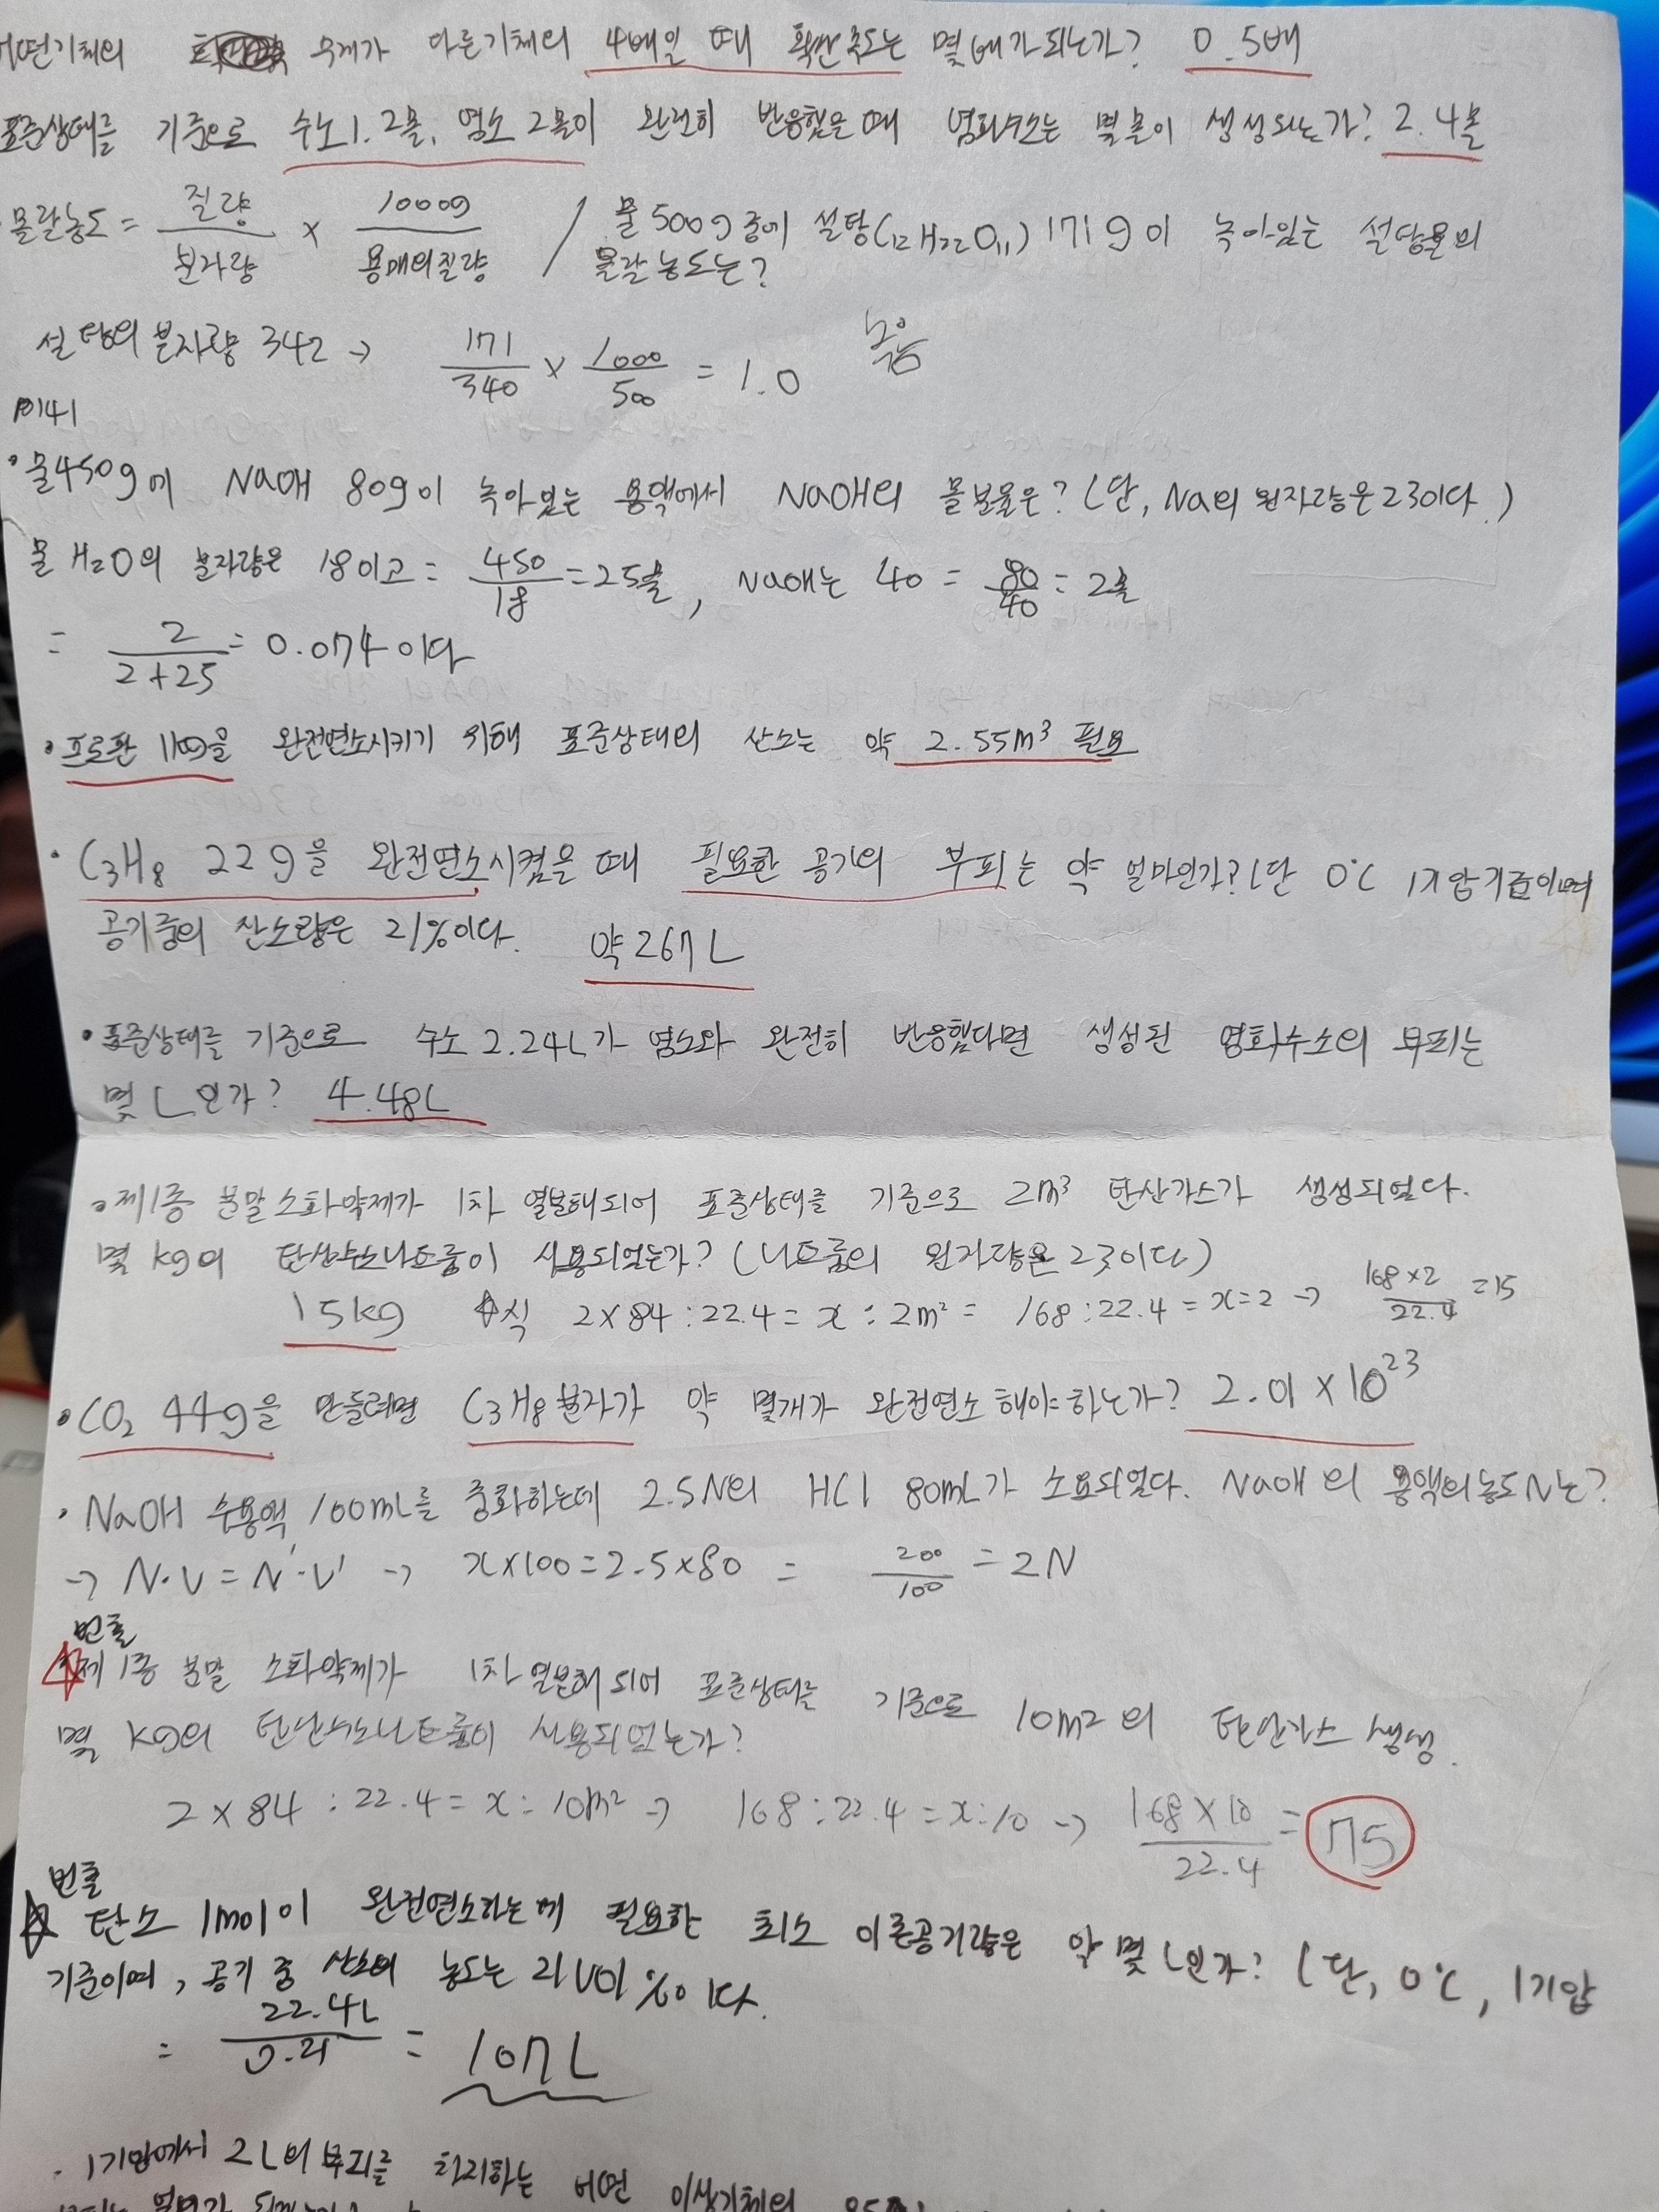 어떤기체의 무게가 다른기체의 4배일 때 확산속도는 몇배가되는가? 0.5배
표준상태를 기준으로 수소1.2몰, 염소 2몰이 완전히 반응했을때 염화수소는 몇몰이 생성되는가? 2.4몰
몰랄농도 = 질량/분자량 × 1000g/용매의질량 / 물 500g 중에 설탕(12H22O11) 171g이 녹아있는 설탕물의
몰랄농도는?
설탕의 분자량 342 → 171/340 × 1000/500 = 1.0
· 물450g에 NaOH 80g이 녹아있는 용액에서 NaOH의 몰분율은? (단, Na의 원자량은 23이다.)
물 H2O의 분자량은 18이고 = 450/18 = 25몰, NaOH는 40 = 80/40 = 2몰
= 2/2+25 = 0.074이다
· 프로판 1kg을 완전연소시키기 위해 표준상태의 산소는 약 2.55m³ 필요
· C3H8 22g을 완전연소시켰을 때 필요한 공기의 부피는 약 얼마인가? (단 0℃ 1기압기준이며
공기중의 산소량은 21%이다. 약 267L
· 표준상태를 기준으로 수소 2.24L가 염소와 완전히 반응했다면 생성된 염화수소의 부피는
몇 L인가? 4.48L
· 제1종 분말소화약제가 1차 열분해되어 표준상태를 기준으로 2m³ 탄산가스가 생성되었다.
몇 kg의 탄산수소나트륨이 사용되었는가? (나트륨의 원자량은 23이다)
15kg ☆식 2×84 : 22.4 = x : 2m² = 168 : 22.4 = x = 2 → 168×2/22.4 = 15
· CO2 44g을 만들려면 C3H8분자가 약 몇개가 완전연소해야하는가? 2.01 × 10²³
· NaOH 수용액 100mL를 중화하는데 2.5N의 HCl 80mL가 소요되었다. NaOH의 용액의농도N는?
→ N·V = N'·V' → x×100 = 2.5×80 = 200/100 = 2N
빈출
☆제1종 분말 소화약제가 1차 열분해 되어 표준상태를 기준으로 10m2의 탄산가스 생성.
몇 kg의 탄산수소나트륨이 사용되었는가?
2×84 : 22.4 = x : 10m² → 168 : 22.4 = x : 10 → 168×10/22.4 = 75
빈출
☆ 탄소 1mol이 완전연소하는데 필요한 최소 이론공기량은 약 몇 L인가? (단, 0℃, 1기압
기준이며, 공기 중 산소의 농도는 21vol%이다.
= 22.4L/0.21 = 107L
· 1기압에서 2L의 부피를 차지하는 어떤 이상기체의